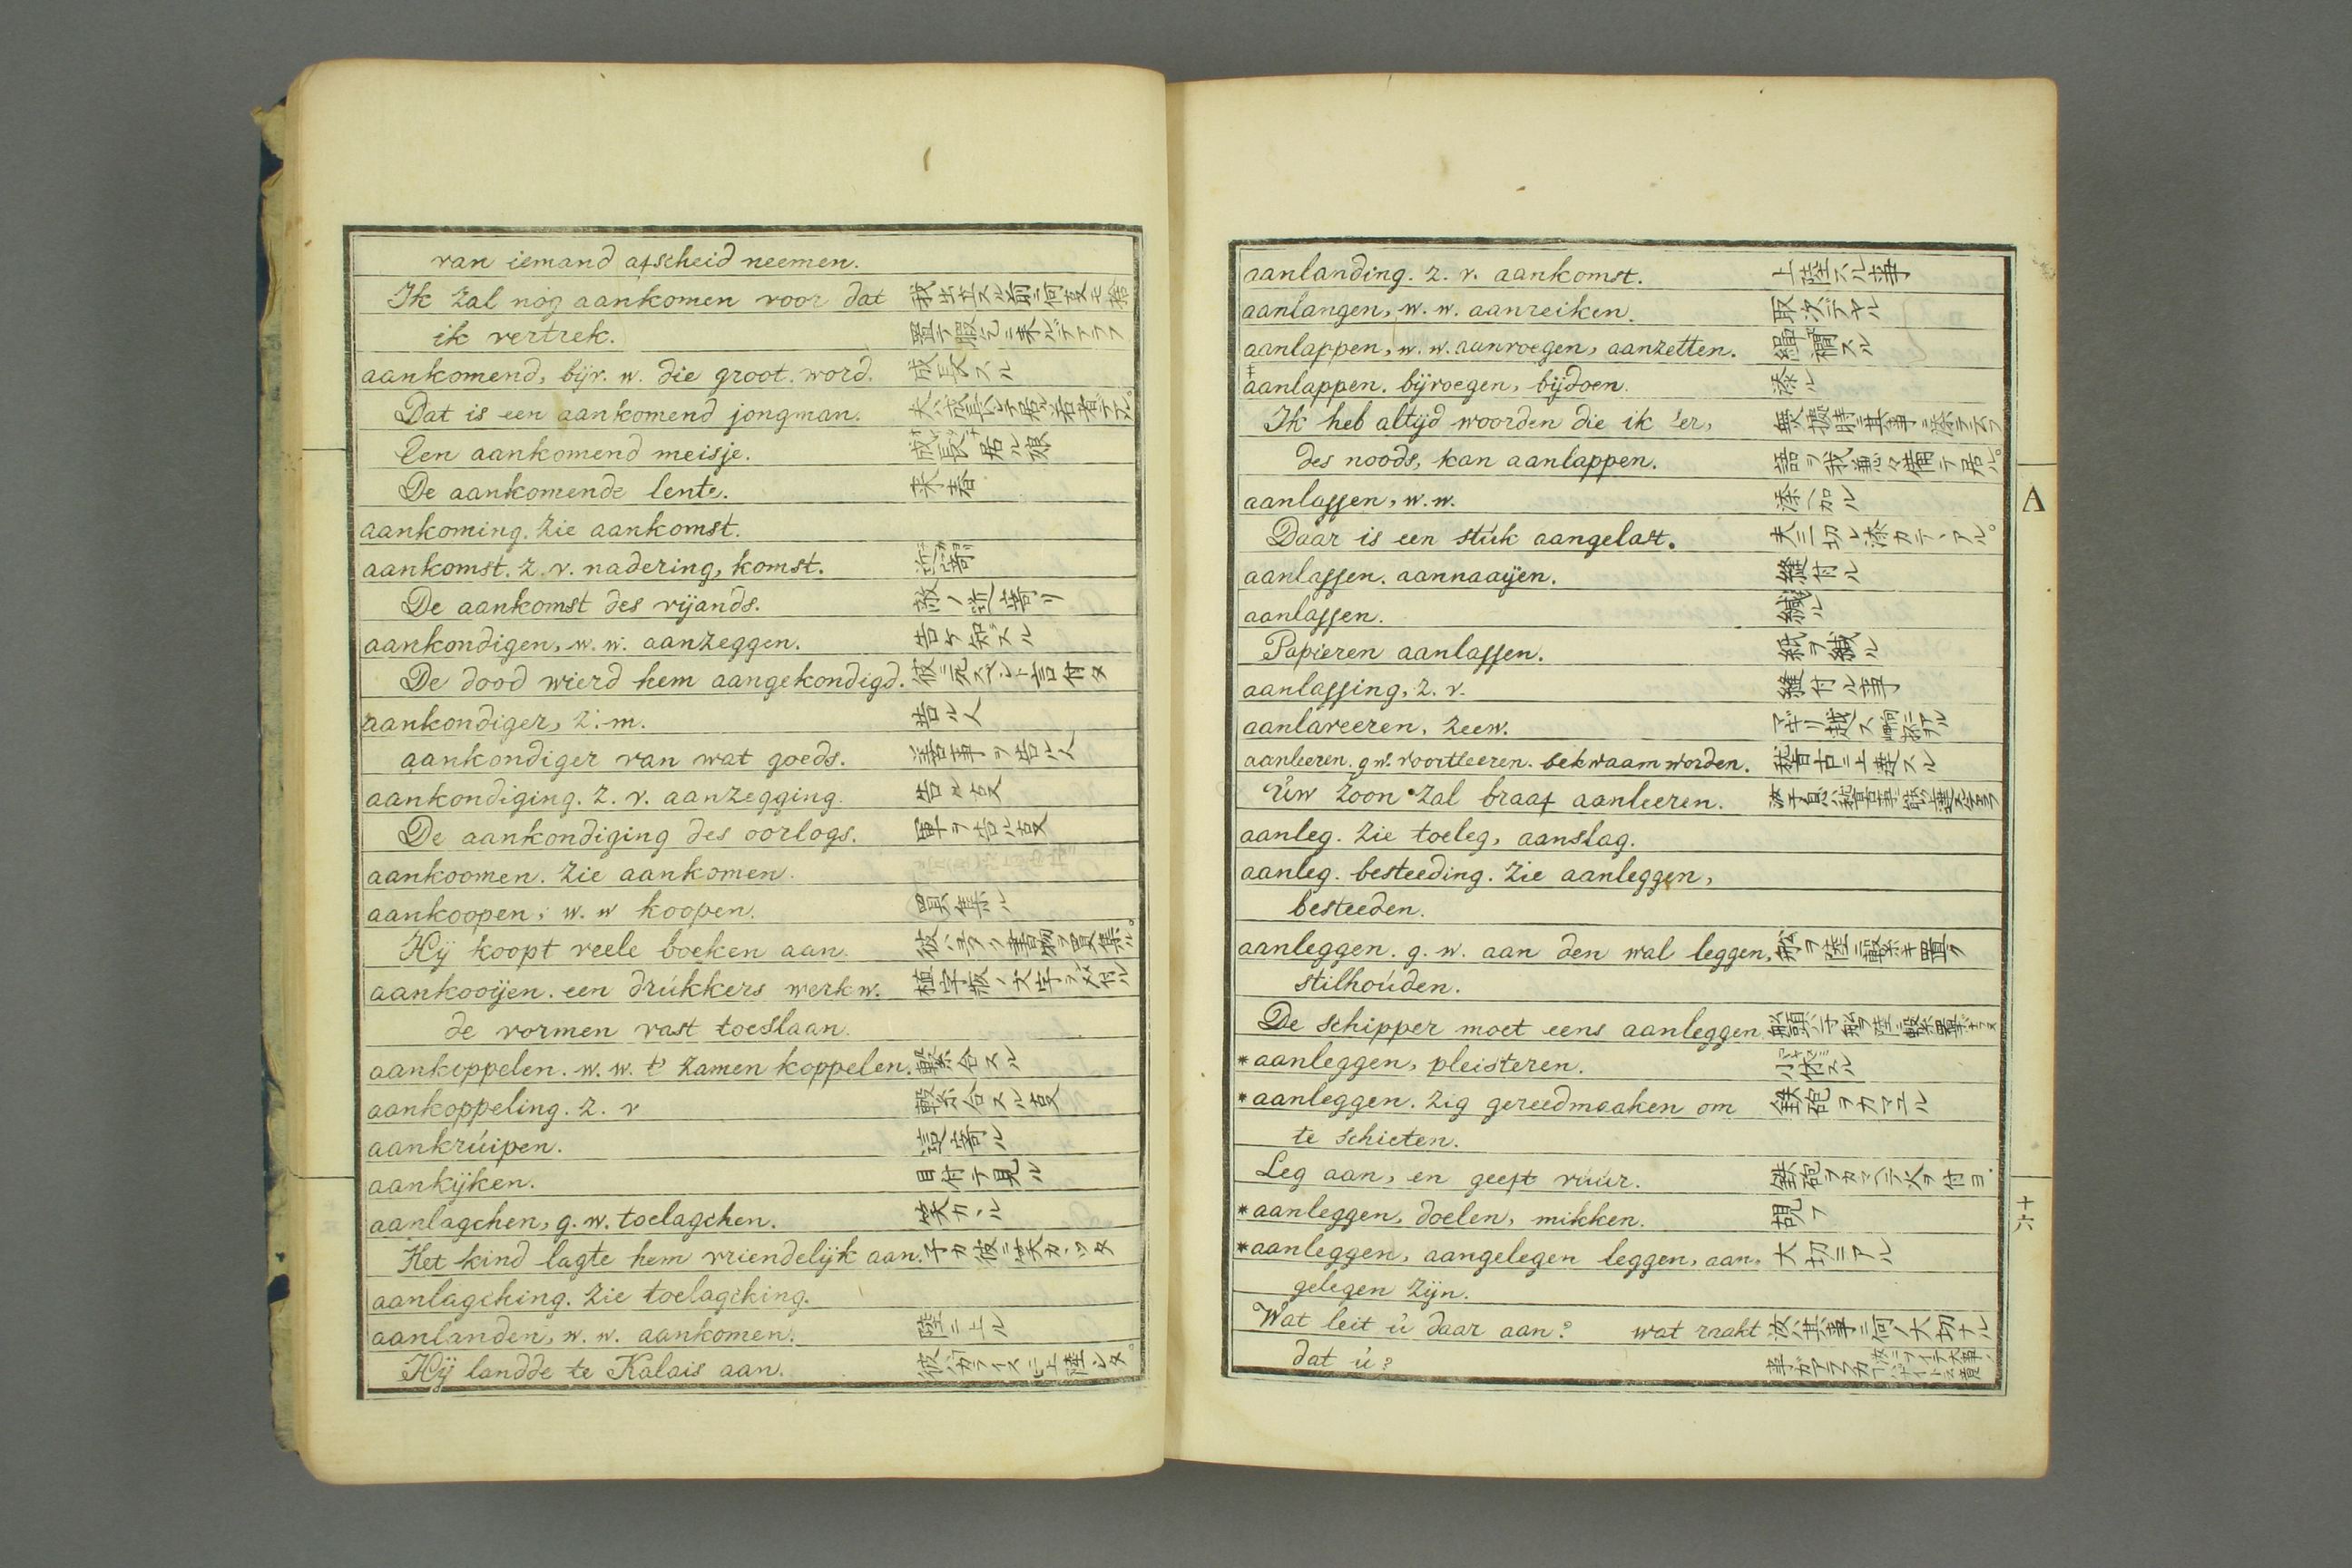 van iemand afscheid neemen.
Ik zal nog aankomen voor dat 我出立スル前ニ何支モ捨
ik vertrek. 置テ暇乞ニ来ルデアラフ
aankomend, bijv. w. die groot word. 成長スル
Dat is een aankomend jongman. 夫ハ成長シテ居ル若者デアル。
Een aankomend meisje. 成長シテ居ル娘
De aankomende lente. 来春
aankoming. Zie aankomst.
aankomst. z. v. nadering, komst. 近寄リ
De aankomst des vijands. 敵ノ近寄リ
aankondigen, w. w. aanzeggen. 告ケ知ラスル
De dood wierd hem aangekondigd. 彼ニ死スベシト言付タ
aankondiger, z. m. 告ル人
aankondiger van wat goeds. 善事ヲ告ル人
aankondiging. z. v. aanzegging. 告ル支
De aankondiging des oorlogs. 軍ヲ告ル支
aankoomen. Zie aankomen.
aankoopen; w. w koopen. 買集ル
Hij koopt veele boeken aan. 彼ハ多クノ書物ヲ買集ル。
aankooijen. een drúkkers werkw. 植字板ノ文字ヲ〆付ル
de vormen vast toeslaan.
aankoppelen. w. w. t' zamen koppelen. 繋合スル
aankoppeling. z. v 繋合スル支
aankrúipen. 這寄ル
aankijken. 目付テ見ル
aanlagchen, g. w. toelagchen. 笑カヽル
Het kind lagte hem vriendelijk aan. 子カ彼ニ笑カヽツタ
aanlagching. Zie toelagching.
aanlanden, w. w. aankomen. 陸ニ上ル
Hij landde te Kalais aan. 彼ハカライスニ上陸シタ。
aanlanding. z. v. aankomst. 上陸スル事
aanlangen, w. w. aanreiken. 取次テヤル
aanlappen, w. w. aanvoegen, aanzetten. スル
aanlappen. bijvoegen, bijdoen. 添ル
Ik heb altijd woorden die ik 'er, 無拠時ニ其事ニ添テ云フ
des noods, kan aanlappen. 語ヲ我悉々備テ居ル。
aanlassen, w. w. 添加ル
Daar is een stúk aangelast. 夫ニ一切レ添カテヽアル。
aanlassen. aannaaijen. 縫付ル
aanlassen. 緘ル
Papieren aanlassen. 紙ヲ緘ル
aanlassing, z. v. 縫付ル事
aanlaveeren. zeew. マギリ越ス
aanleeren. g. w. voortleeren. bekwaam worden. 稽古ニ上達スル
Úw zoon zal braaf aanleeren.
aanleg. Zie toeleg, aanslag.
aanleg. besteeding. Zie aanleggen,
besteeden.
aanleggen. g. w. aan den wal leggen, 船ヲ陸ニ繋キ置ク
stilhoúden.
De schipper moet eens aanleggen
*aanleggen, pleisteren. 小休スル
*aanleggen. Zig gereedmaaken om 鉄砲ヲカマエル
te schieten.
Leg aan, en geeft vúúr. 鉄砲ヲカマヘテ火ヲ付ヨ.
*aanleggen, doelen, mikken. 覘フ
*aanleggen, aangelegen leggen, aan, 大切ニアル
gelegen zijn.
Wat leit ú daar aan? wat raakt 汝ハ其事ニ何ノ大切ナル
dat ú? 事ガアラフカ
A
十六